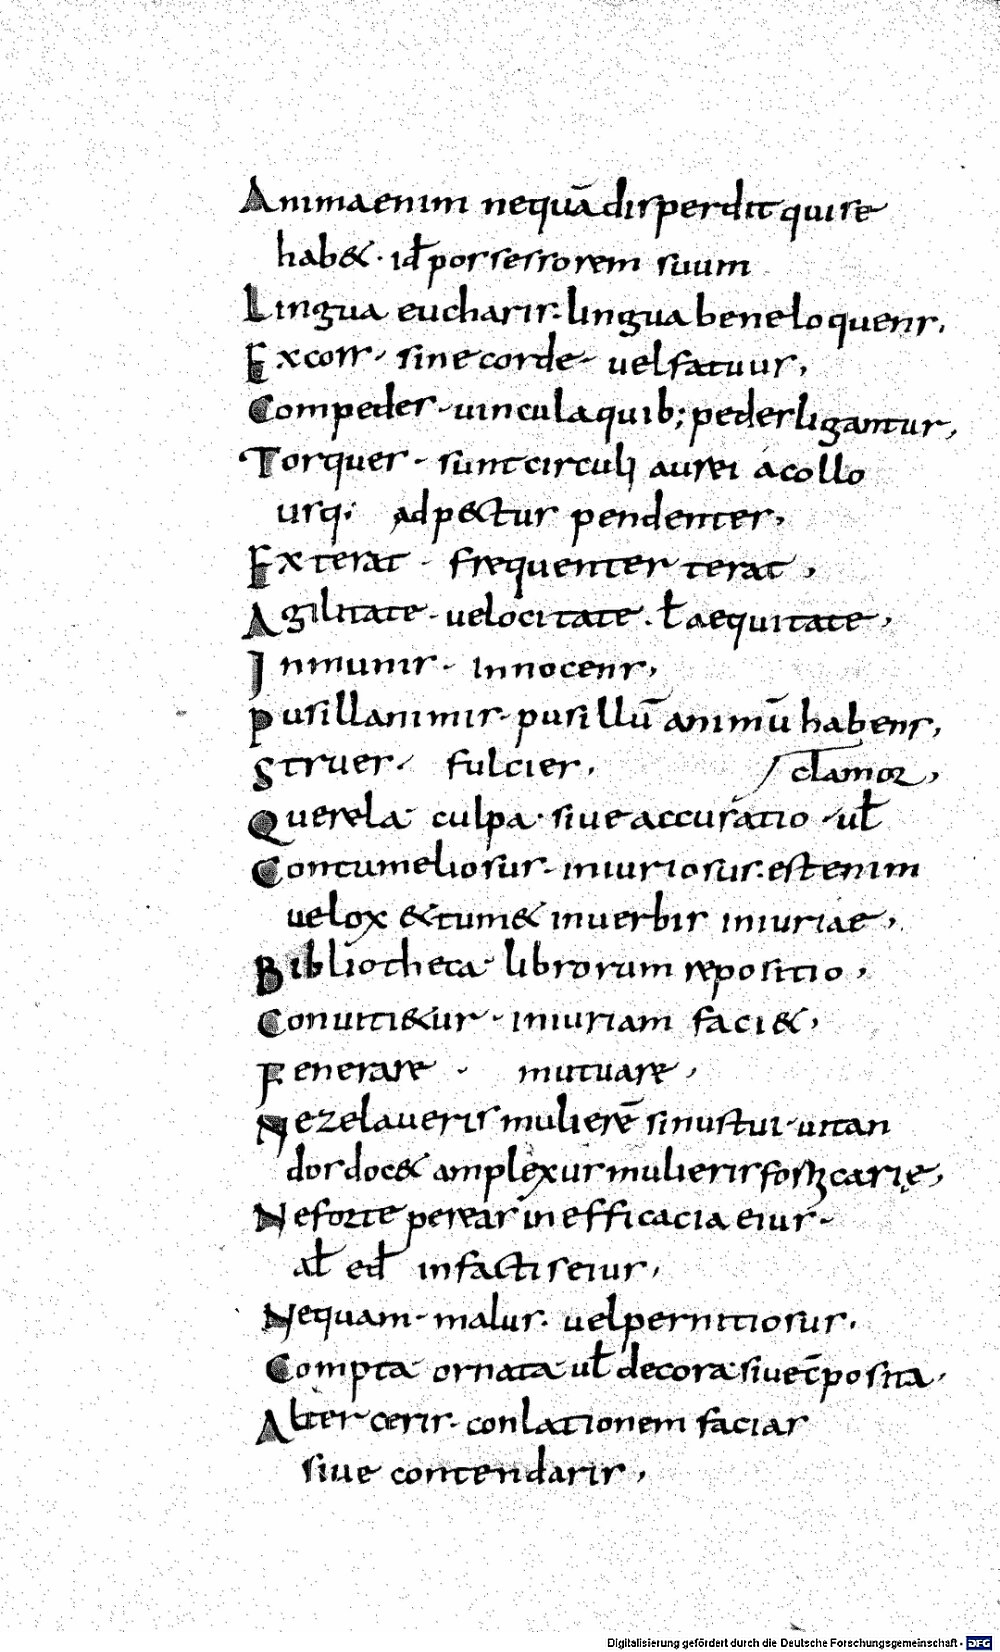 Anima enim nequā disperdit qui se
hab&· id̄ possessorem suum
Lingua eucharis· lingua bene loquens,
Excors· sine corde· uel fatuus,
Compedes· uincula quib; pedes ligantur,
Torques· sunt circuli aurei a collo
usq; ad p&ctus pendentes,
Ex terat· frequenter terat,
Agilitate· uelocitate· ł aequitate,
Inmunis· innocens,
Pusillanimis· pusillū animū habens,
Strues· fulcies,
clamor,
Querela· culpa· siue accusatio· uł
Contumeliosus· iniuriosus· est enim
uelox &tum& in uerbis iniuriae,
Bibliotheca· librorum repositio,
Conuiti&ur· iniuriam faci&,
Fenerare· mutuare,
Ne zelaueris mulierē sinus tui· uitan
dos doc& amplexus mulieris
Ne forte pereas in efficacia eius·
ał ed̄ in factis eius,
Nequam· malus· uel pernitiosus,
Compta ornata uł decora· siue c̄posita,
Alterceris· conlationem facias
siue contendaris,
Digitalisierung gefördert durch die Deutsche Forschungsgemeinschaft - DFG